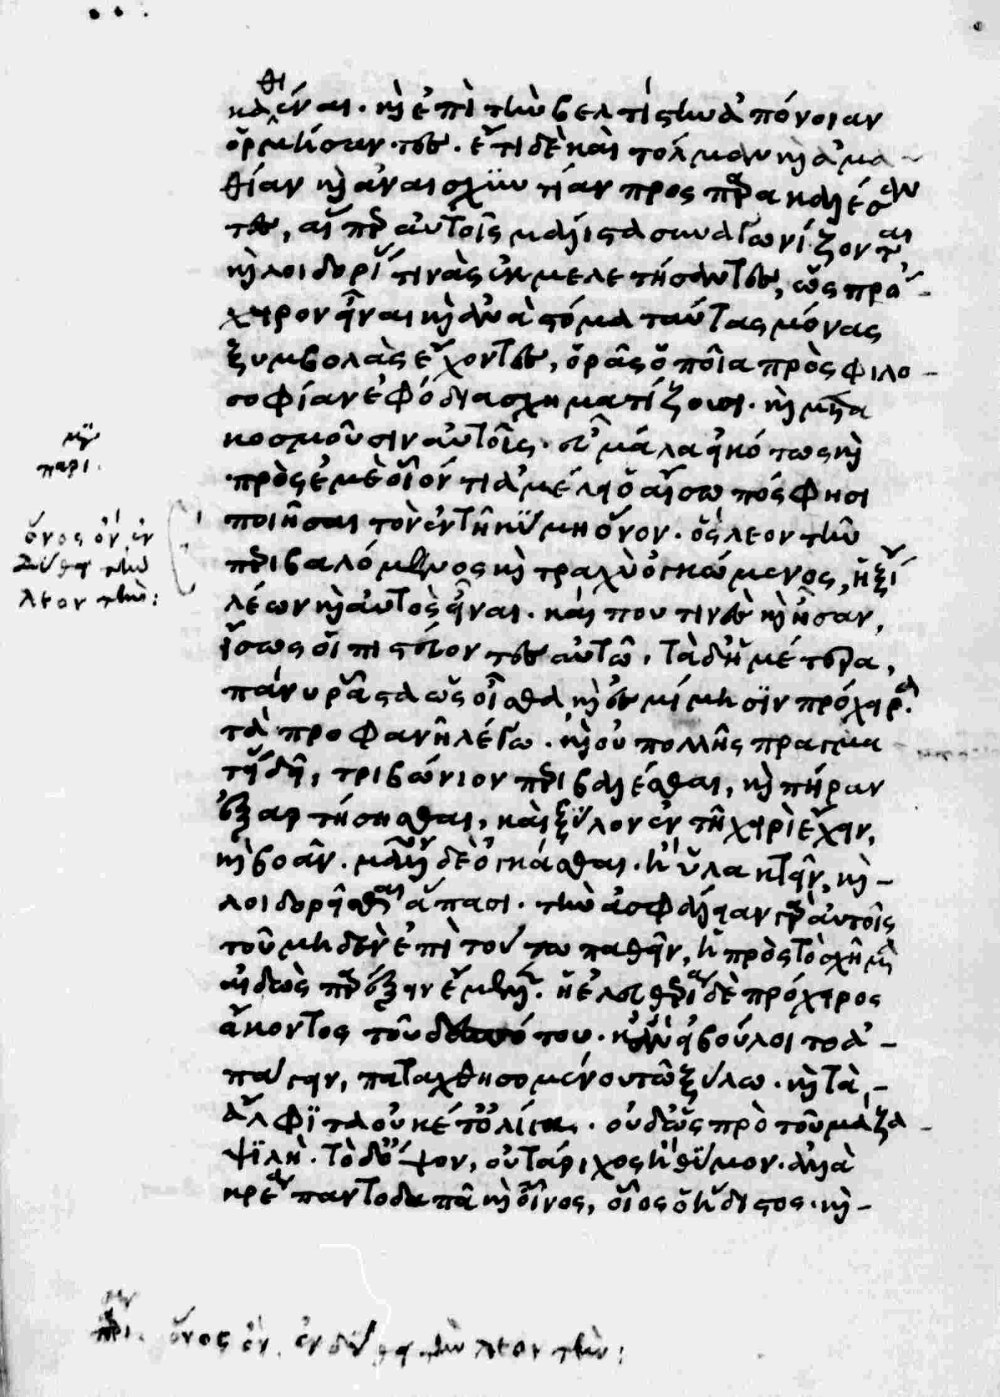 καθεῖναι. καὶ ἐπὶ τὴν βελτίστην ἀπόνοιαν
ὁρμήσαντες. ἔτι δὲ καὶ τόλμαν καὶ ἀμα-
θίαν καὶ ἀναισχυντίαν προσπαρακαλέσαν
τες, αἵπερ αὐτοῖς μάλιστα συναγωνίζονται,
καὶ λοιδορίας τινὰς ἐκμελετήσαντες, ὡς πρό-
χειρον εἶναι καὶ ἀνὰ στόμα ταύτας μόνας
ξυμβολὰς ἔχοντες, ὁρᾷς ὁποῖα πρὸς φιλο-
σοφίαν ἐφόδια σχηματίζουσι. καὶ μετα
κοσμοῦσιν αὑτοὺς. εὖ μάλα εἰκότως καὶ
πρὸς ἐμὲ οἷόν τι ἀμέλει ὁ αἴσωπός φησι
ποιῆσαι τὸν ἐν τῇ κύμῃ ὄνον. ὃς λεοντῆν
περιβαλόμενος καὶ τραχὺ ὀγκώμενος, ἠξίου
λέων καὶ αὐτὸς εἶναι. καί που τινὲς καὶ ἦσαν,
ἴσως οἱ πιστεύοντες αὐτῷ. τὰ δ' ἡμέτερα,
πάνυ ῥᾷστα ὡς οἶσθα, καὶ ἐς μίμησιν πρόχειρα.
τὰ προφανῆ λέγω. καὶ οὐ πολλῆς πραγμα
τείας δεῖ, τριβώνιον περιβαλέσθαι, καὶ πήραν
ἐξαρτήσασθαι, καὶ ξύλον ἐν τῇ χειρὶ ἔχειν,
καὶ βοᾶν. μᾶλλον δὲ ὀγκᾶσθαι. ἢ ὑλακτεῖν, καὶ-
λοιδορεῖσθαι ἅπασι. τὴν ἀσφάλειαν γὰρ αὐτοῖς
τοῦ μηδὲν ἐπὶ τούτῳ παθεῖν, ἡ πρὸς τὸ σχῆμα
αἰδὼς παρέξειν ἔμελλεν. ἡ ἐλευθερία δὲ πρόχειρος
ἄκοντος τοῦ δεσπότου. κἂν εἰ βούλοιτο ἀ-
πάγειν, παταχθησομένου τῷ ξύλῳ. καὶ τὰ-
ἄλφιτα οὐκέτ' ὀλίγα. οὐδ' ὡς πρὸ τοῦ μᾶζα-
ψιλή. τὸ δὲ ὄψον, οὐ τάριχος ἢ θύμον. ἀλλὰ
κρέα παντοδαπὰ καὶ οἶνος, οἷος ὁ ἥδιστος. καὶ-
παρι.
ὄνος ὢν ἐν
δύῃ τὴν
λεοντῆν:
παρι. ὄνος ὢν. ἐνδύῃ τὴν λεοντῆν: